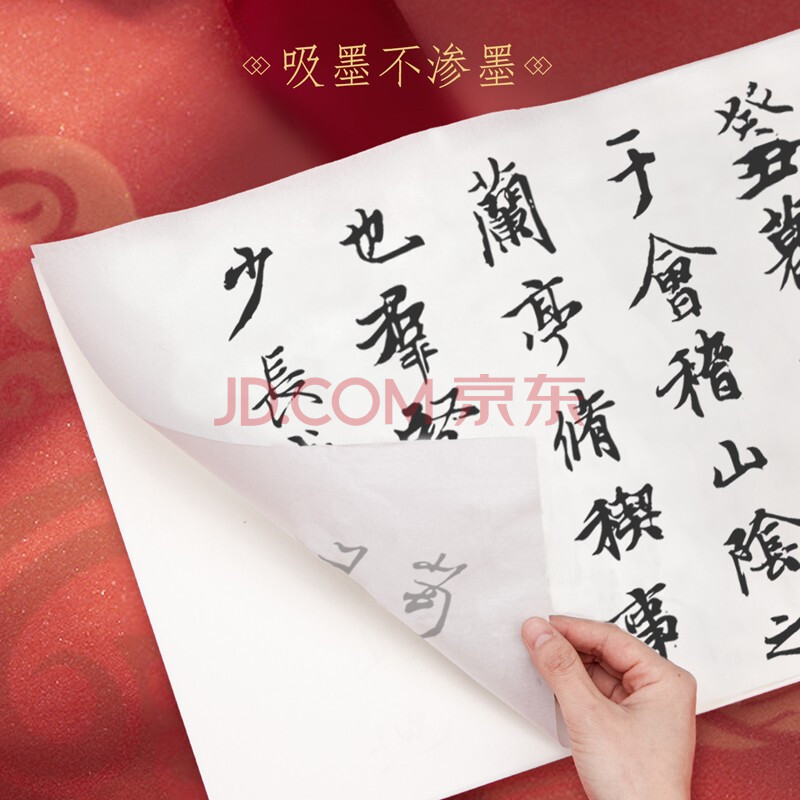 吸墨不渗墨
癸丑暮
于會稽山陰之
蘭亭脩稧事
也羣賢
少長
JD.COM 京东